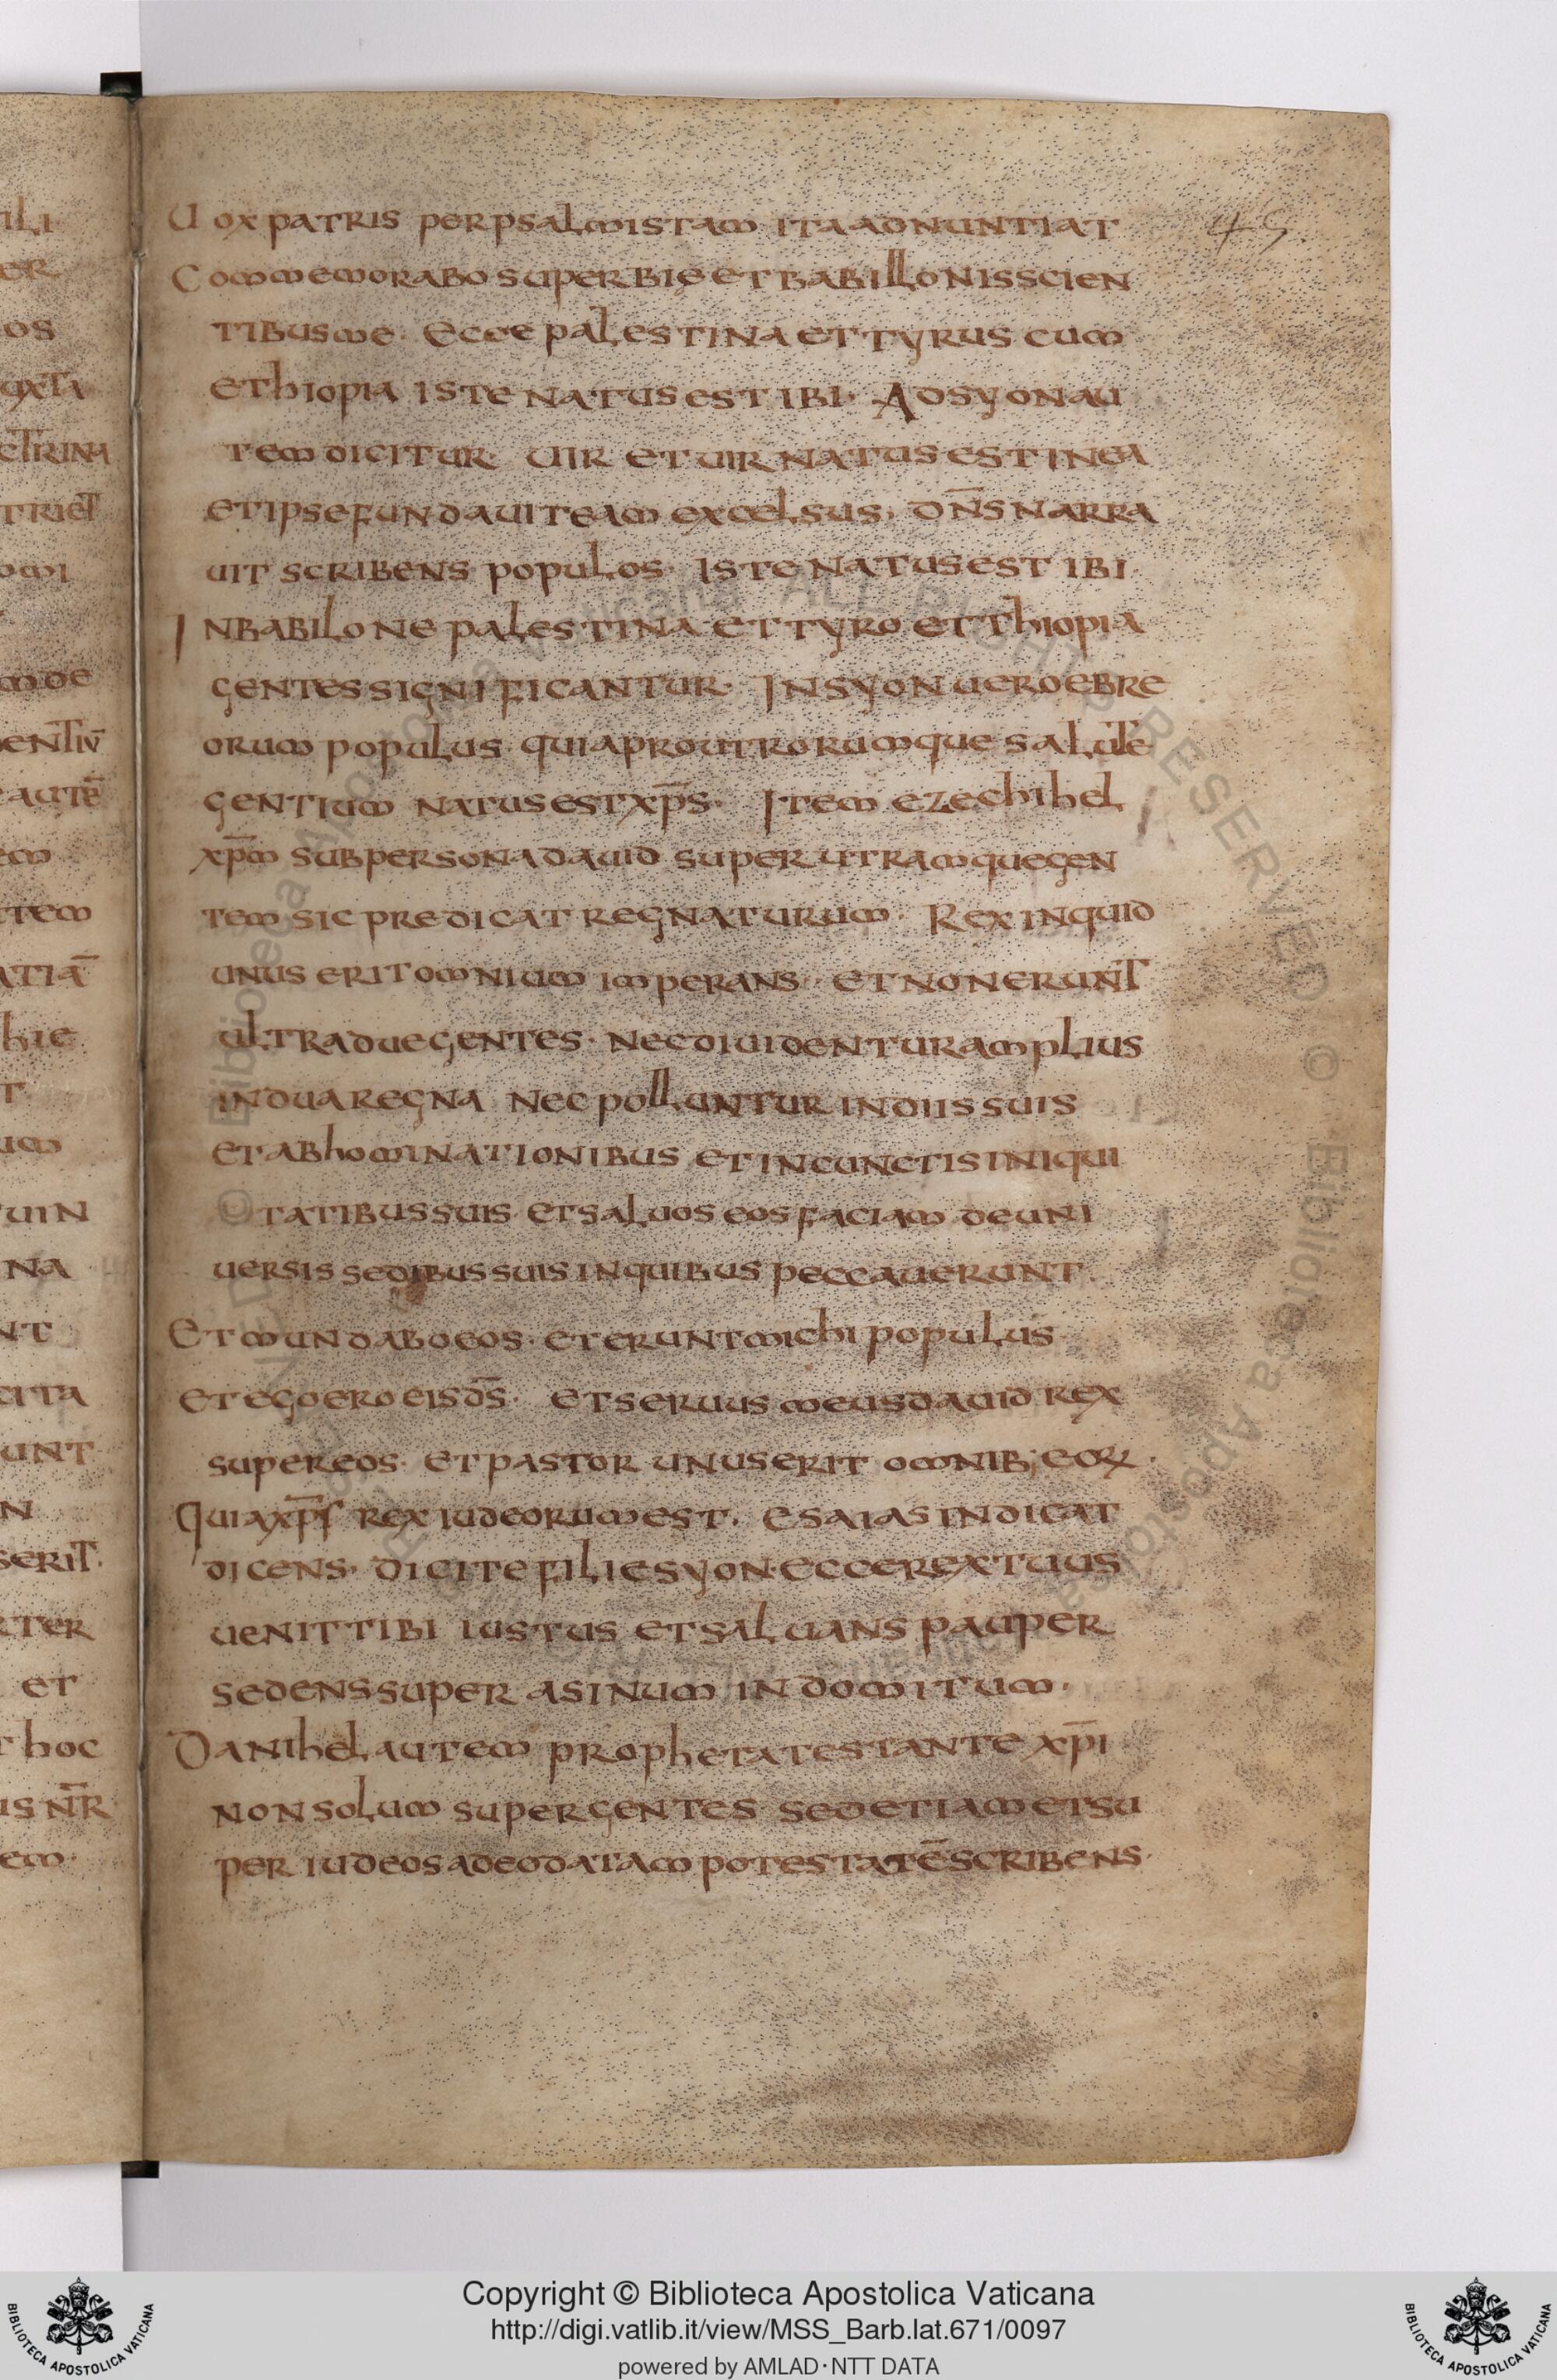 45
Uox patris per psalmistam ita adnuntiat
Commemorabo superbię et babillonis scien
tibus me · Ecce palestina et tyrus cum
ethiopia iste natus est ibi · Ad syon au
tem dicitur · Uir et uir natus est in ea
et ipse fundauit eam excelsus · dn̄s narra
uit scribens populos · Iste natus est ibi ·
In babilone palestina et tyro et thiopia
gentes significantur · In syon uero ebre
orum populus · quia pro utrorumque salutē
gentium natus est xp̄s · Item ezechihel
xp̄m sub persona dauid super utramque gen
tem sic predicat regnaturum · Rex inquid
unus erit omnium imperans · et non erunt
ultra due gentes · nec diuidentur amplius
in dua regna nec polluntur in diis suis
et abhominationibus et in cunctis iniqui
tatibus suis et saluos eos faciam de uni
uersis sedibus suis in quibus peccauerunt ·
Et mundabo eos · et erunt michi populus ·
et ego ero eis d̄s · et seruus meus dauid rex
super eos · et pastor unus erit omnib; eoꝝ ·
Quia xp̄s rex iudeorum est · esaias indicat
dicens · dicite filie syon · ecce rex tuus
uenit tibi iustus et saluans pauper
sedens super asinum indomitum ·
Danihel autem propheta testante xp̄i
non solum super gentes sed etiam et su
per iudeos a deo datam potestatē scribens ·
Copyright © Biblioteca Apostolica Vaticana
http://digi.vatlib.it/view/MSS_Barb.lat.671/0097
powered by AMLAD·NTT DATA
BIBLIOTECA APOSTOLICA VATICANA
BIBLIOTECA APOSTOLICA VATICANA